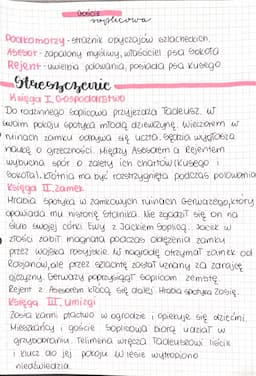 Goście
soplicowa
Podkomorzy - strażnik obyczajów szlacheckich,
Asesor - zapalony myśliwy, właściciel psa Sokoła
Rejent - uwielbia polowania, posiada psa Kusego
- Streszczenie -
Księga I, Gospodarstwo
Do rodzinnego Soplicowa przyjeżdża Tadeusz. W
swoim pokoju spotyka młodą dziewczynę. Wieczorem w
ruinach zamku odbywa się uczta. Sędzia wygłasza
naukę o grzeczności. Między Asesorem a Rejentem
wybucha spór o zalety ich chartów (Kusego i
Sokoła). Kłótnia ma być rozstrzygnięta podczas polowania
Księga II, zamek
Hrabia spotyka w zamkowych ruinach Gerwazego, który
opowiada mu historię Stolnika. Nie zgodził się on na
ślub swojej córki Ewy z Jackiem Soplicą. Jacek w
złości zabił magnata podczas oblężenia zamku
przez wojska rosyjskie. W nagrodę otrzymał zamek od
Rosjanów, ale przez szlachtę został uznany za zdrajcę
ojczyzny. Gerwazy poprzysiągł Soplicom zemstę.
Rejent z Asesorem kłócą się dalej. Hrabia spotyka Zosię.
Księga III, umizgi
Zosia karmi ptactwo w ogrodzie i opiekuje się dziećmi.
Mieszkańcy i goście Soplicowa biorą udział w
grzybobraniu. Telimena wręcza Tadeuszowi liścik
i klucz do jej pokoju. W lesie wytropiono
niedźwiedzia.